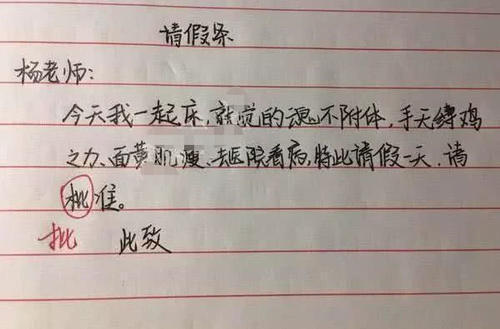 请假条
杨老师:
今天我一起床,就觉的魂不附体,手无缚鸡
之力、面黄肌瘦、去医院看病,特此请假一天、请
枇准。
批 此致